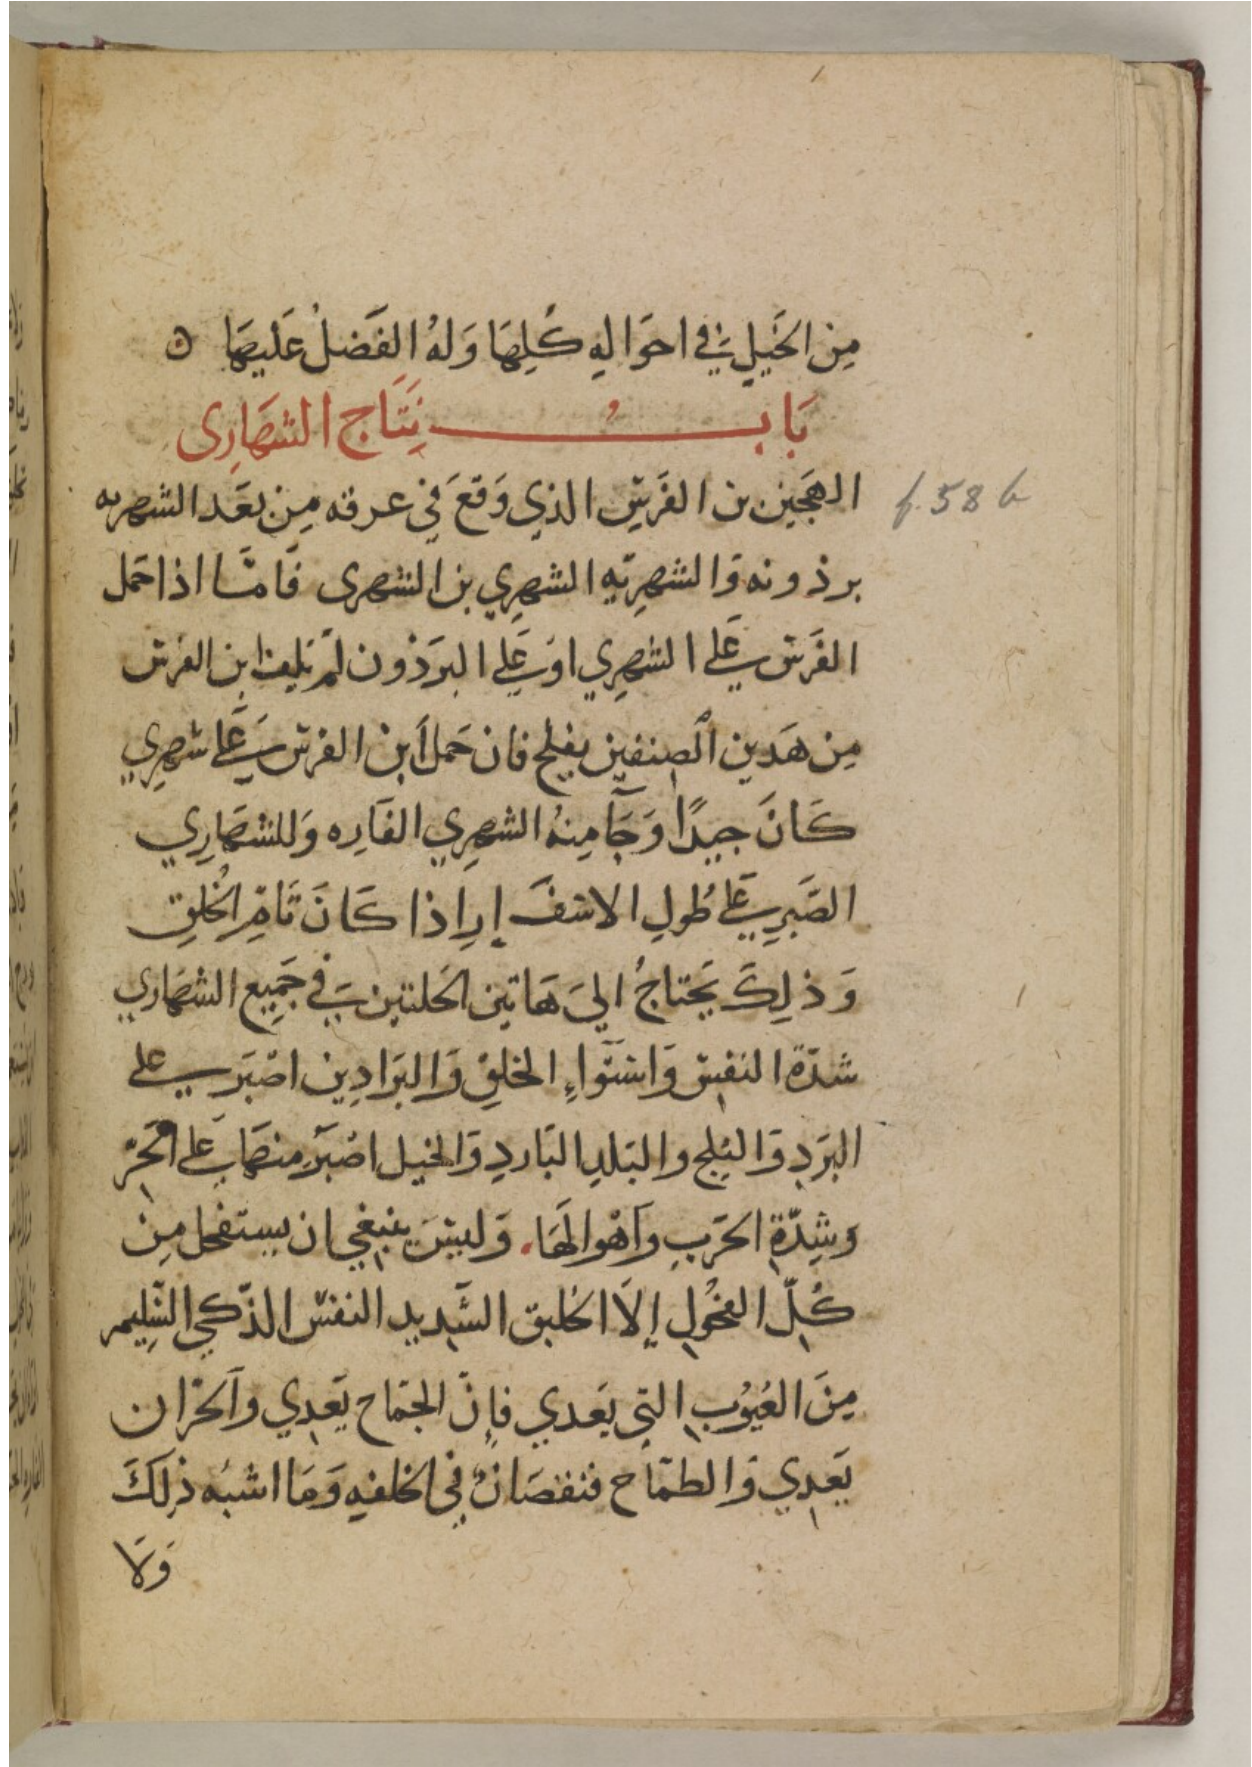 مِن الخَيلِ في احوَالهِ كُلِّهَا وَلهُ الفَضلُ عَليهَا
بَابُ نتَاج الشهَارِى
الهَجين بن الفَرسِ الذي وَقعَ في عرقه مِن بعَد الشهريه
f. 58 b
برذونه وَالشهرِيّهِ الشهرِي بن الشهرى فَامّا اذا حَمل
الفَرس عَلى الشهرِي اوْ عَلى البرَذون لم ابن الفرس
مِن هَذين الصِنفين يفلح فان حَمل ابن الفرس عَلى شهرِي
كَانَ جيدًا وَجَآ مِنهُ الشهرِي الفَارِه وَللشهَارِي
الصَّبرِ عَلى طُولِ الاسفَارِ اذا كَانَ تَامّ الخُلقِ
وَذلِكَ يَحتاجُ اليَ هَاتين الخلتين في جَمِيع الشهَاري
شدّة النفس وَاستَوآءِ الخلقِ وَالبرَاذِين اصْبرَ على
البرَدِ وَالثلجِ والبَلدِ البَاردِ وَالخيل اصْبرَ منهَا عَلى الحَرّ
وشِدّةِ الحَربِ وَاهْوالهَا. وَليسَ ينبغي ان يستفحل مِن
كُلّ الفحُولِ إلاّ الخليق الشَّديد النفس الذّكي السَّليم
مِنَ العُيوُبِ التي يَعدي فإنّ الجمّاح يَعدِي وَالحرّان
يَعدِي وَالطمّاح فنقصَانٌ في الخلقهِ وَمَا اشبُه ذلِكَ
وَلا